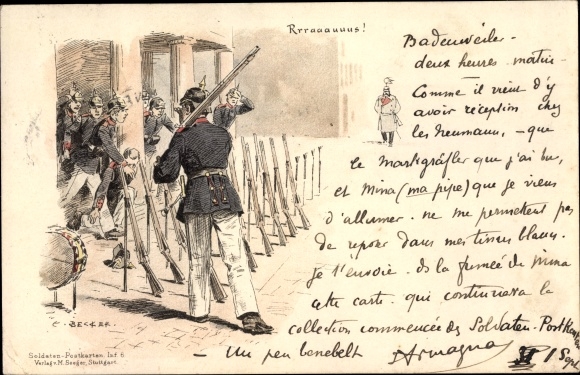 Rrraaauuus!
Badenweiler -
deux heures matin -
Comme il vient d'y
avoir réception chez
les Neumann, - que
le Markgräfler que j'ai bu,
et Mina (ma pipe) que je viens
d'allumer. ne me permettent pas
de reposer dans mes tissus blancs.
Je t'envoie. ds la fumée de Mina
cette carte. qui continuera la
collection commencée des Soldaten-Postkarten
- Un peu benebelt
1 Sept
C. BECKER.
Soldaten-Postkarten. Inf. 6.
Verlag v. M. Seeger, Stuttgart.